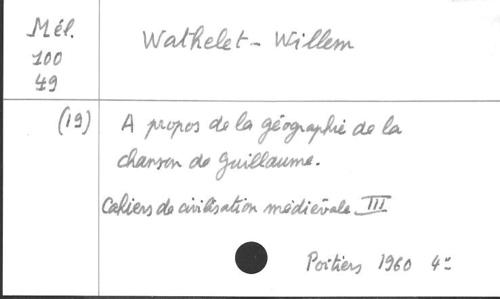 Mél.
100
49
Wathelet-Willem
(19) A propos de la géographie de la
chanson de Guillaume.
Cahiers de civilisation médiévale III
Poitiers 1960 4°